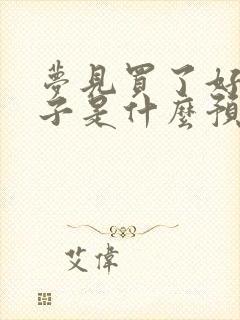 夢見買了好
子是什麼預
艾偉